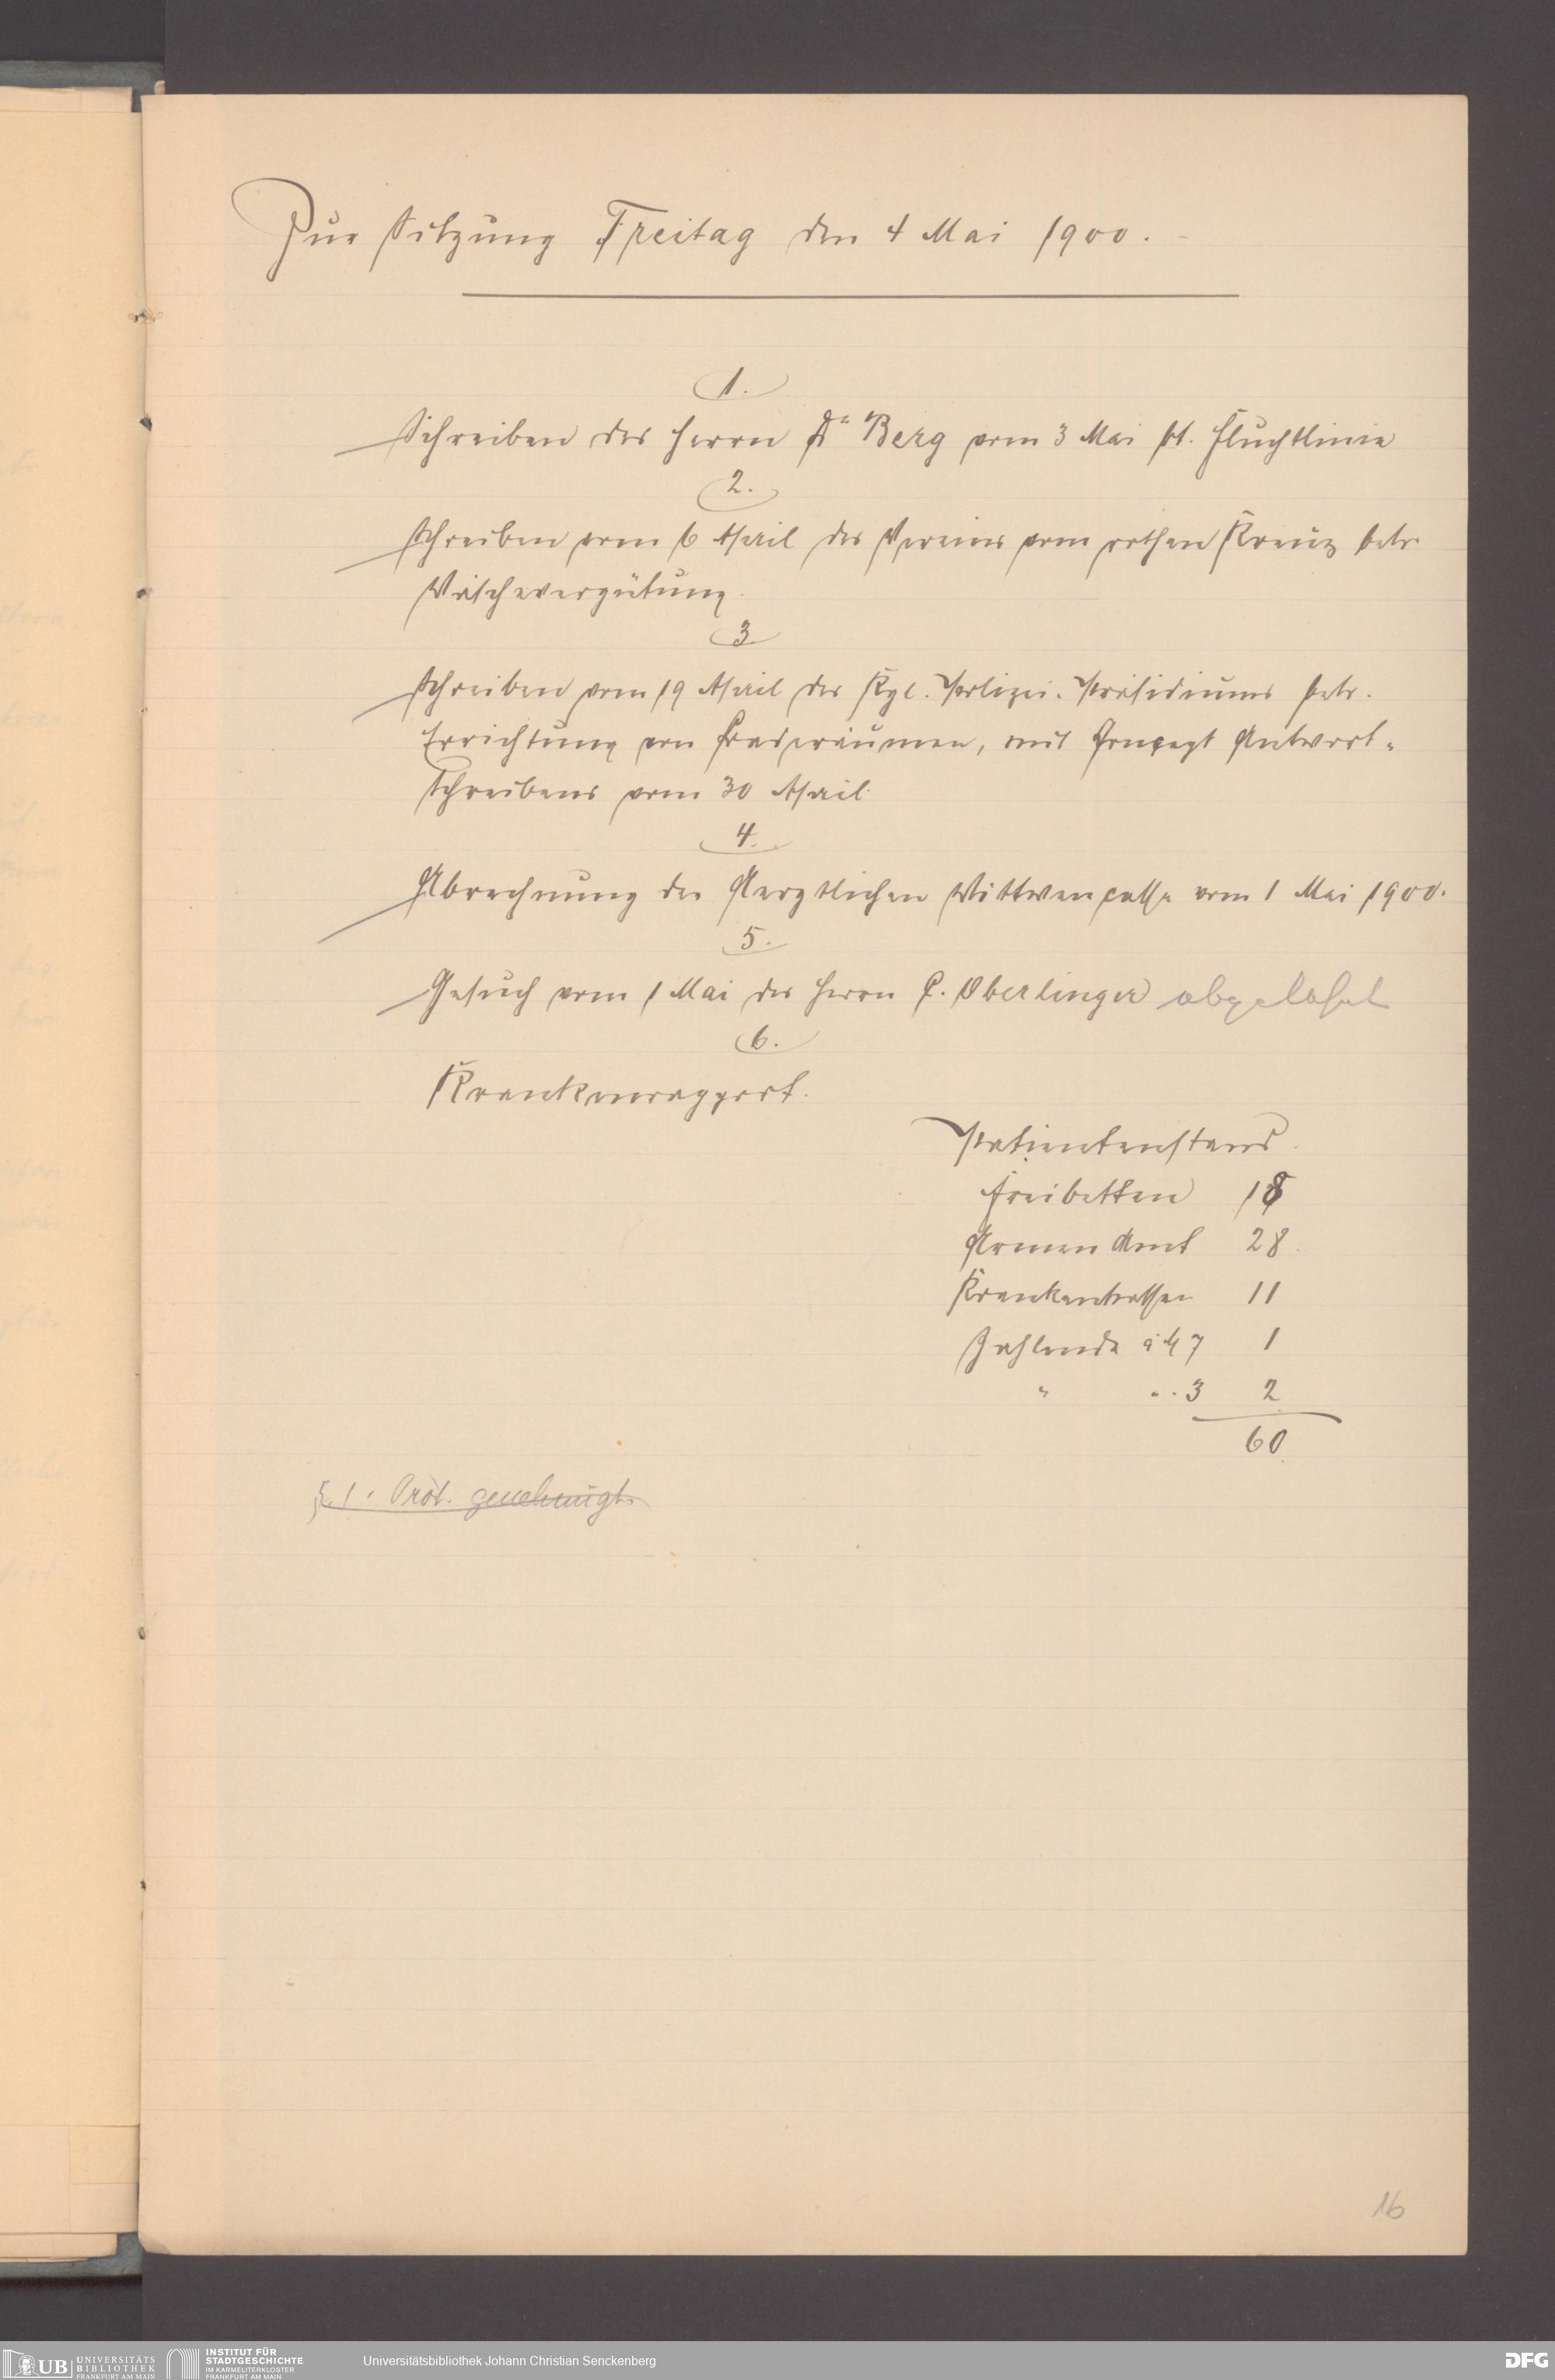 Zur Sitzung Freitag den 4 Mai 1900.
1.
Schreiben des Herrn Dr Berg vom 3 Mai bt. Fluchtlinie
2.
Schreiben vom 6 April des Vereins vom rothen Kreuz betr.
Wäschevergütung.
3
Schreiben vom 19 April des Kgl. Polizei-Präsidiums betr.
Errichtung von Baderäumen, mit Concept Antwort-
Schreibens vom 30 April.
4.
Abrechnung der Aerztlichen Wittwencasse vom 1 Mai 1900.
5.
Gesuch vom 1 Mai des Herrn C. Oberlinger abgelehnt
6.
Krankenrapport.
Patientenstand.
Freibetten 18
Armen Amt 28.
Krankenkassen 11
Zahlende à M 7 1
" " . 3 2
60.
§. 1. Prot. genehmigt.
16
UB UNIVERSITÄTS
BIBLIOTHEK
FRANKFURT AM MAIN
INSTITUT FÜR
STADTGESCHICHTE
IM KARMELITERKLOSTER
FRANKFURT AM MAIN
Universitätsbibliothek Johann Christian Senckenberg
DFG